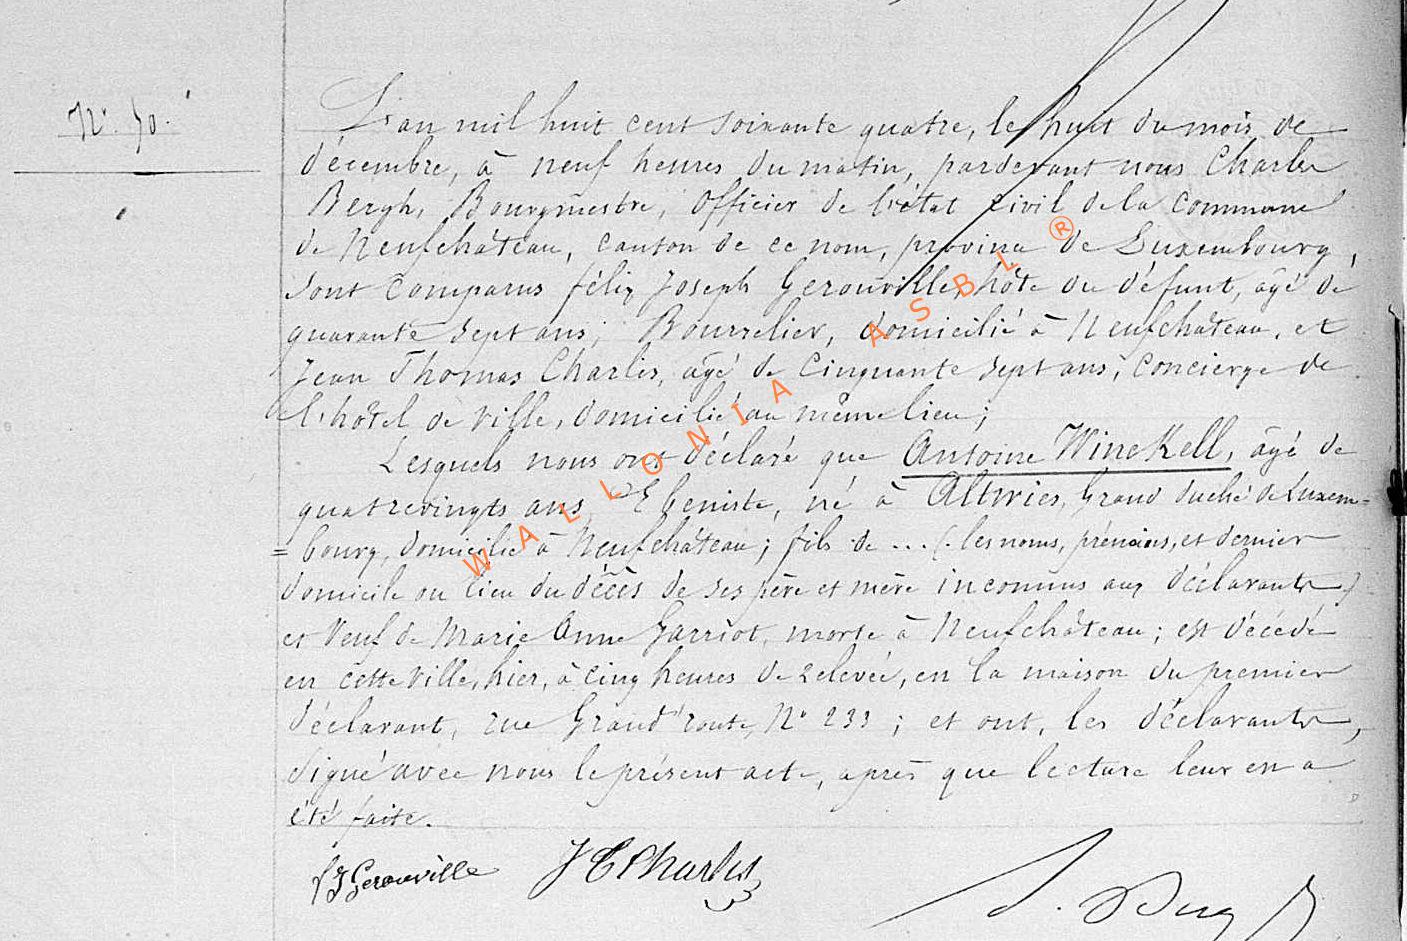 N° 50.
L'an mil huit cent soixante quatre, le huit du mois de
décembre, à neuf heures du matin, pardevant nous Charles
Bergh, Bourgmestre, officier de l'état civil de la commune
de Neufchâteau, canton de ce nom, province de Luxembourg,
sont comparus félix Joseph Gerouville, hôte du défunt, âgé de
quarante sept ans, Bourrelier, domicilié à Neufchâteau, et
Jean Thomas Charles, âgé de cinquante sept ans, concierge de
l'hôtel de ville, domicilié au même lieu;
Lesquels nous ont déclaré que Antoine Winckell, âgé de
quatrevingts ans, Ebeniste, né à Altwies, Grand duché de Luxem-
=bourg, domicilié à Neufchâteau; fils de ... (les noms, prénoms, et dernier
domicile ou lieu du décès de ses père et mère inconnus aux déclarants)
et Veuf de Marie Anne Garriot, morte à Neufchâteau; est décédé
en cette ville, hier, à cinq heures de relevée, en la maison du premier
déclarant, rue Grand'route, N° 233; et ont, les déclarants,
signé avec nous le présent acte, après que lecture leur en a
été faite.
fJGerouville JTCharles
WALLONIA ASBL ®